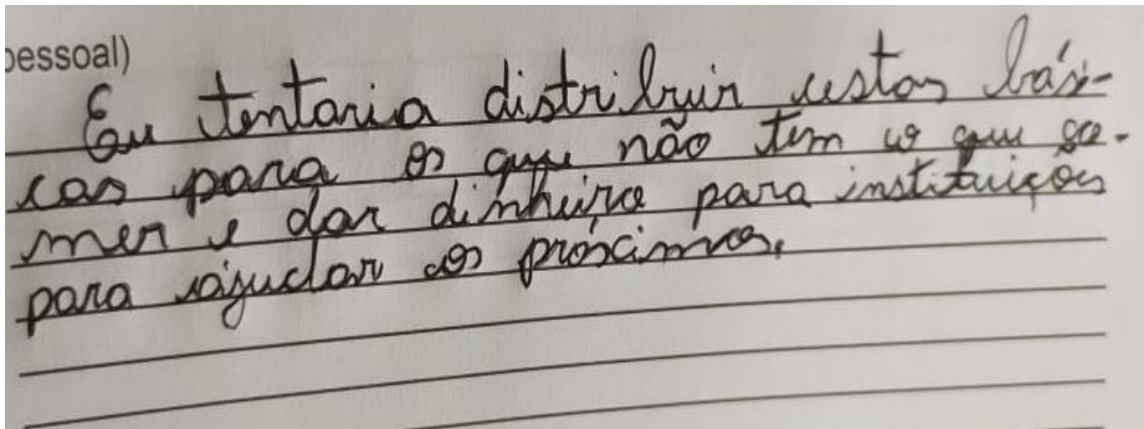 pessoal)
Eu tentaria distribuir cestas bási-
cas para os que não tem o que co-
mer e dar dinheiro para instituições
para ajudar os próximos.